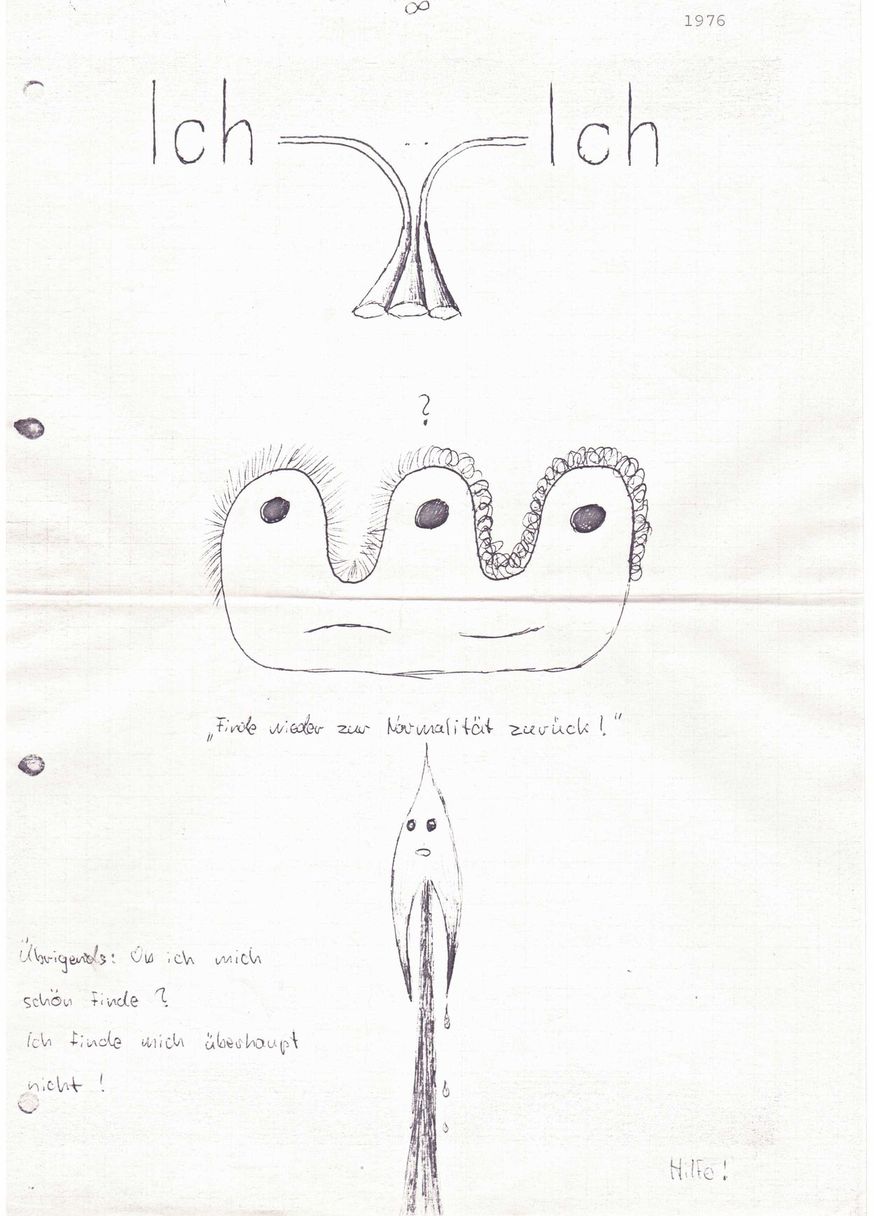 1976
Ich Ich
?
„Finde wieder zur Normalität zurück!“
Übrigends: Ob ich mich
schön finde ?
Ich finde mich überhaupt
nicht !
Hilfe!